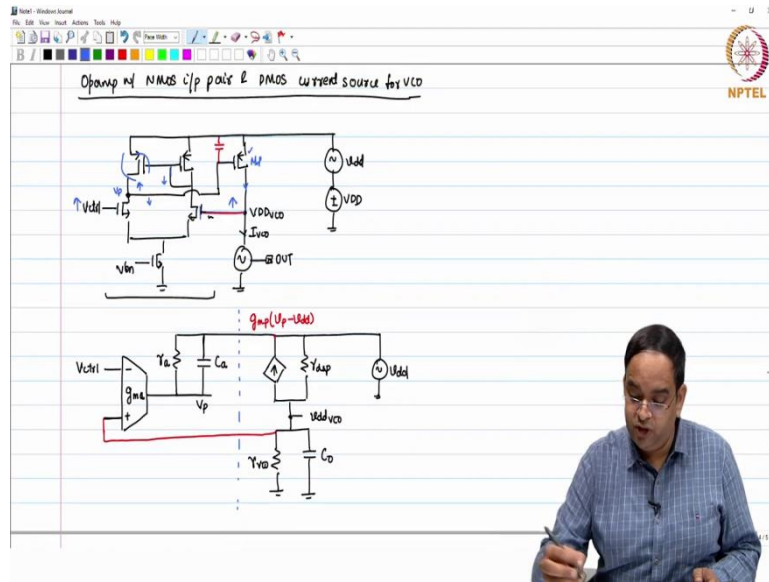 Note1 - Windows Journal
File Edit View Insert Actions Tools Help
Page Width
B I
NPTEL
Opamp w/ NMOS i/p pair & PMOS current source for VCO
Vp
Vctrl
Vbn
VDDvco
Ivco
OUT
vdd
VDD
gmp(Vp-Vdd)
Vctrl
gma
ra
Ca
Vp
rdsp
vdd
vddvco
rvco
Co